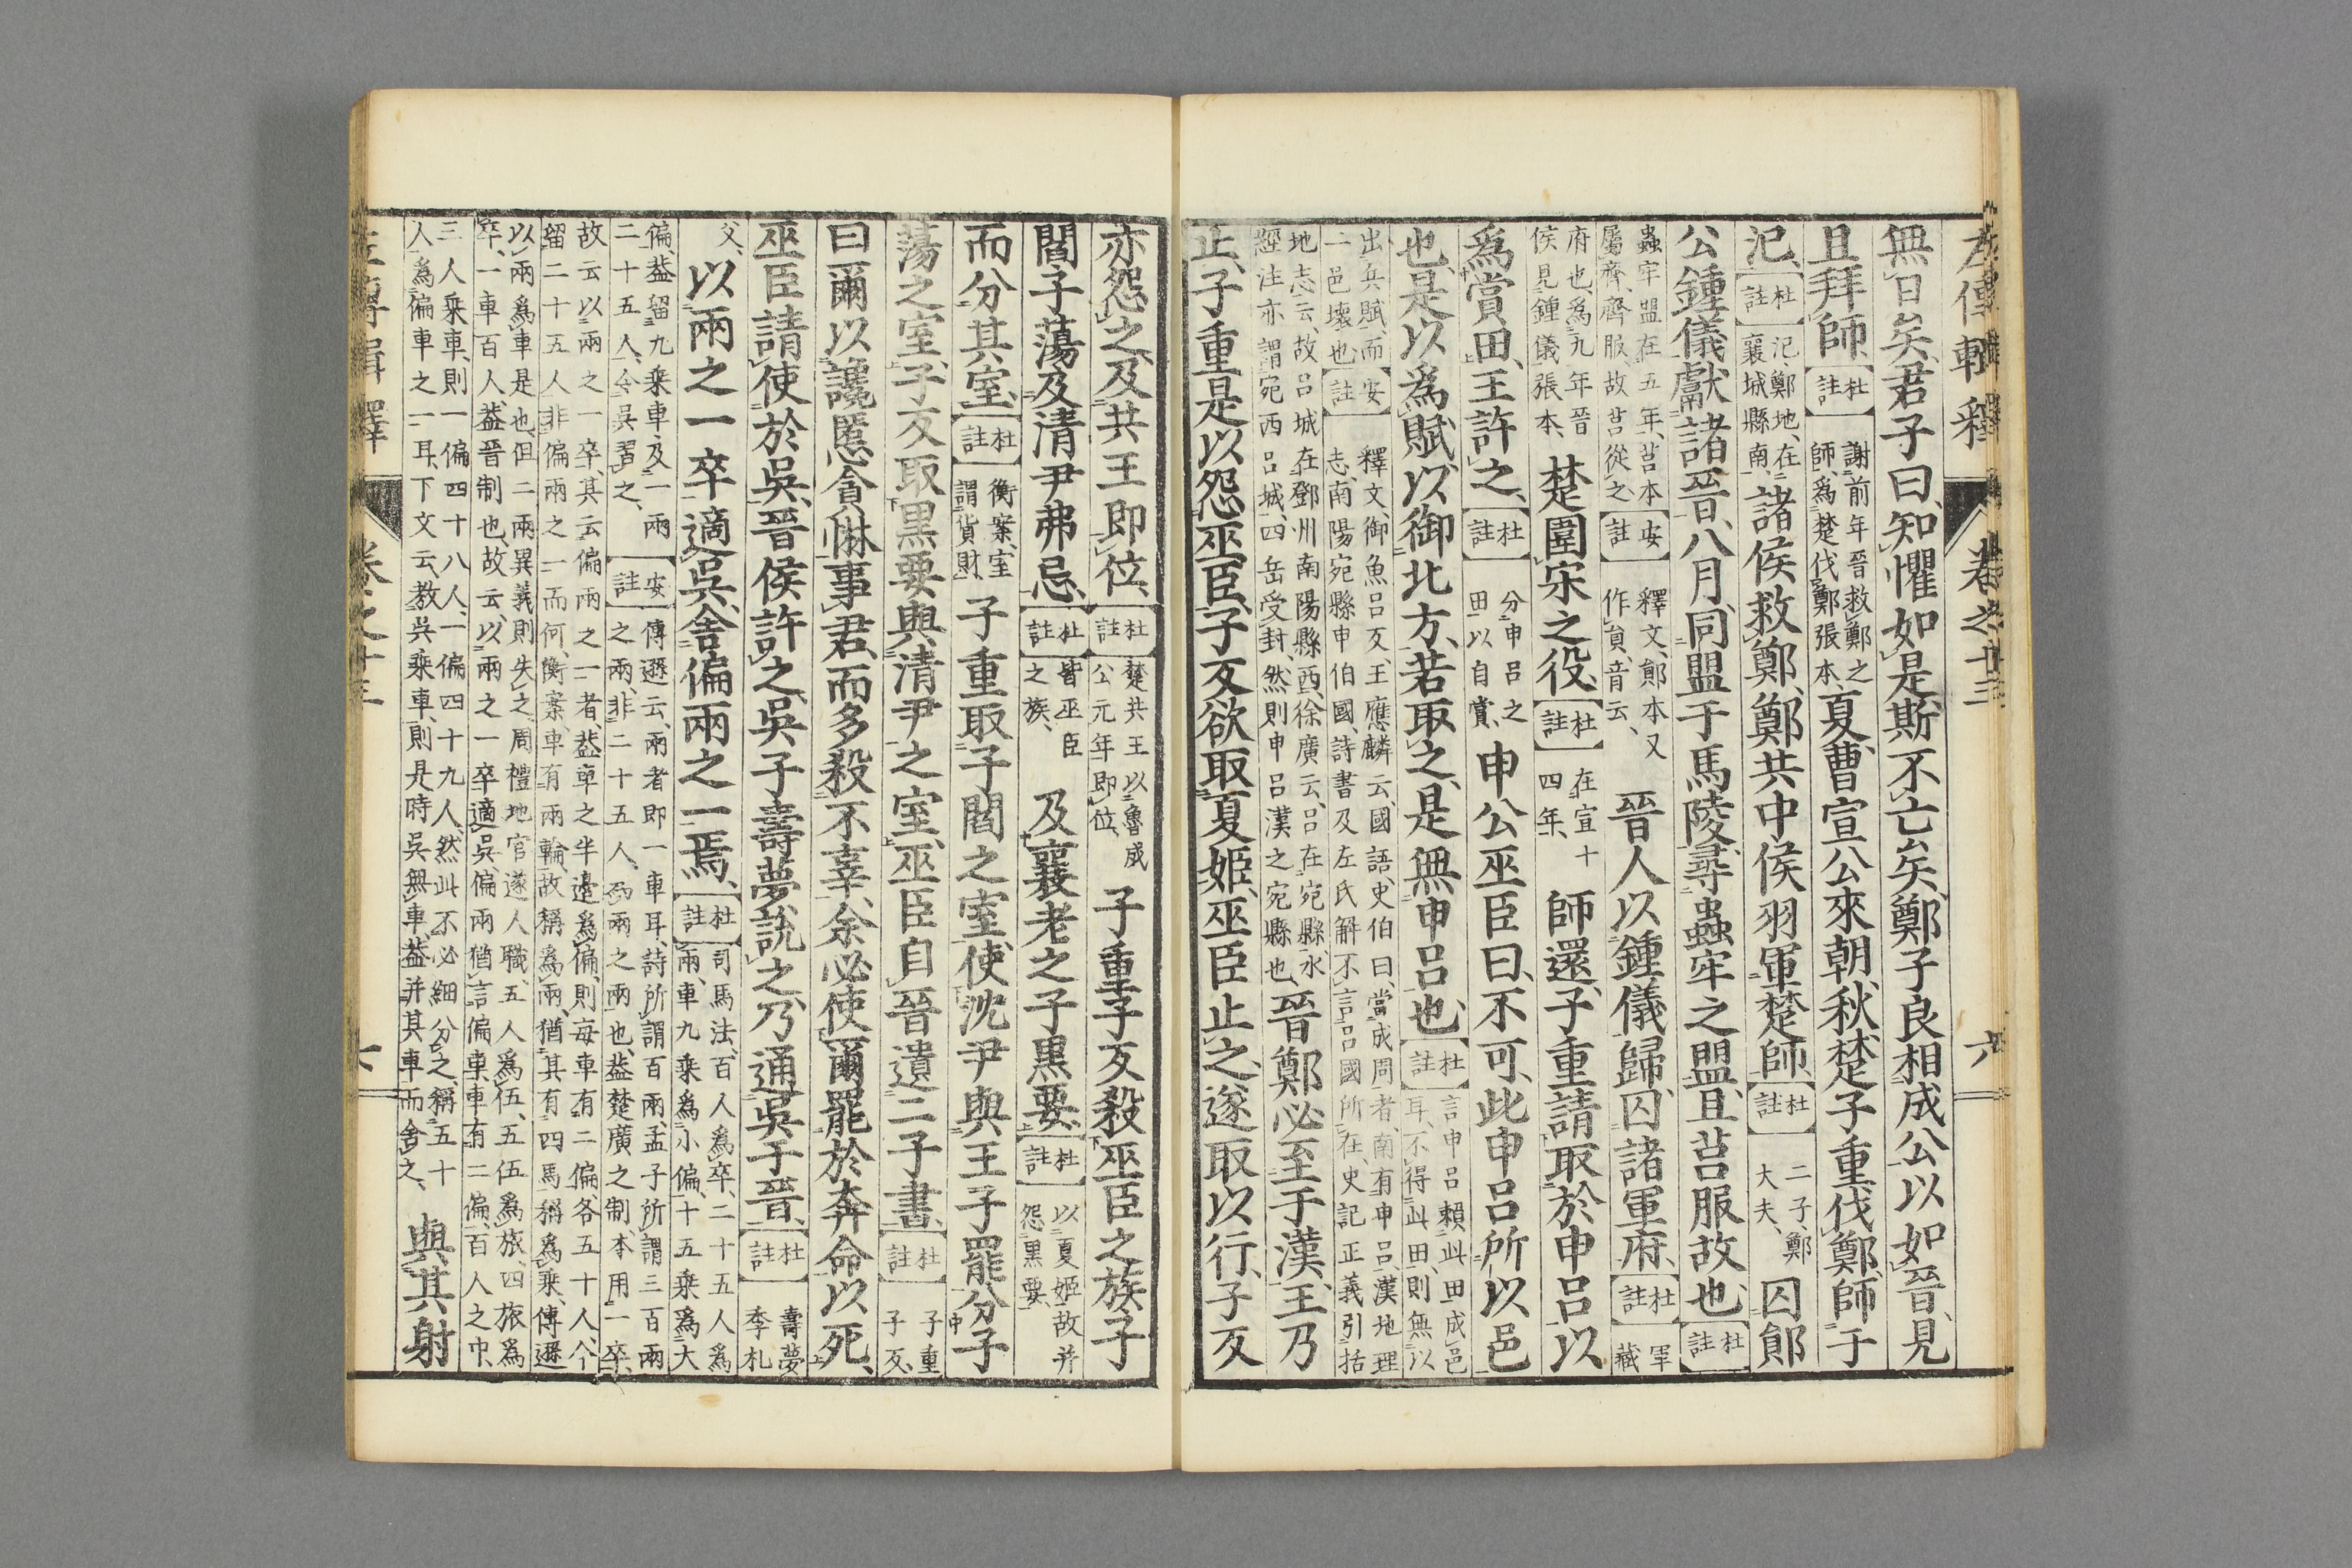 左傳輯釋 卷之十三 六
無日矣、君子曰、知懼如是、斯不亡矣、鄭子良相成公以如晉、見
且拜師、[杜註]謝前年晉救鄭之師、爲楚伐鄭張本、夏曹宣公來朝、秋、楚子重伐鄭、師于
氾、[杜註]氾、鄭地、在襄城縣南、諸侯救鄭、鄭共中侯羽軍楚師、[杜註]二子、鄭大夫、囚鄖
公鍾儀、獻諸晉、八月、同盟于馬陵、尋蟲牢之盟、且莒服故也、[杜註]
蟲牢盟在五年、莒本屬齊、齊服、故莒從之、[安註]釋文、鄖本又作員、音云、晉人以鍾儀歸、囚諸軍府、[杜註]軍藏
府也、爲九年晉侯見鍾儀張本、楚圍宋之役、[杜註]在宣十四年、師還、子重請取於申呂以
爲賞田、王許之、[杜註]分申呂之田以自賞、申公巫臣曰、不可、此申呂所以邑
也、是以爲賦、以御北方、若取之、是無申呂也、[杜註]言申呂賴此田成邑耳、不得此田、則無以
出兵賦、而二邑壞也、[安註]釋文、御魚呂反、王應麟云、國語史伯曰、當成周者、南有申呂、漢地理志、南陽宛縣申伯國、詩書及左氏解不言呂國所在、史記正義引括
地志云、故呂城在鄧州南陽縣西、徐廣云、呂在宛縣、水經注亦謂宛西呂城、四岳受封、然則申呂漢之宛縣也、晉鄭必至于漢、王乃
止、子重是以怨巫臣、子反欲取夏姬、巫臣止之、遂取以行、子反
亦怨之、及共王即位、[杜註]楚共王以魯成公元年即位、子重子反殺巫臣之族子
閻子蕩及清尹弗忌、[杜註]皆巫臣之族、及襄老之子黒要、[杜註]以夏姬故并怨黒要、
而分其室、[杜註]衡案、室謂貨財、子重取子閻之室、使沈尹與王子罷分子
蕩之室、子反取黒要與清尹之室、巫臣自晉遺二子書、[杜註]子重子反、
曰、爾以讒慝貪惏事君、而多殺不辜、余必使爾罷於奔命以死、
巫臣請使於吳、晉侯許之、吳子壽夢說之、乃通吳于晉、[杜註]壽夢季札
父、以兩之一卒適吳、舍偏兩之一焉、[杜註]司馬法、百人爲卒、二十五人爲兩、車九乘爲小偏、十五乘爲大
偏、蓋留九乘車及一兩二十五人、令吳習之、[安註]傳遜云、兩者即一車耳、詩所謂百兩、孟子所謂三百兩之兩、非二十五人爲兩之兩也、蓋楚廣之制、本用一卒、
故云以兩之一卒、其云偏兩之一者、蓋車之半邊爲偏、則每車有二偏、各五十人、今留二十五人、非偏兩之一而何、衡案、車有兩輪、故稱爲兩、猶其有四馬稱爲乘、傳遜
以兩爲車是也、但二兩異義則失之、周禮地官遂人職、五人爲伍、五伍爲旅、四旅爲卒、一車百人、蓋晉制也、故云以兩之一卒適吳、偏兩猶言偏車、車有二偏、百人之中、
三人乘車、則一偏四十八人、一偏四十九人、然此不必細分之、稱五十人爲偏車之一耳、下文云、教吳乘車、則是時吳無車、蓋并其車而舍之、與其射
左傳輯釋 卷之十三 六